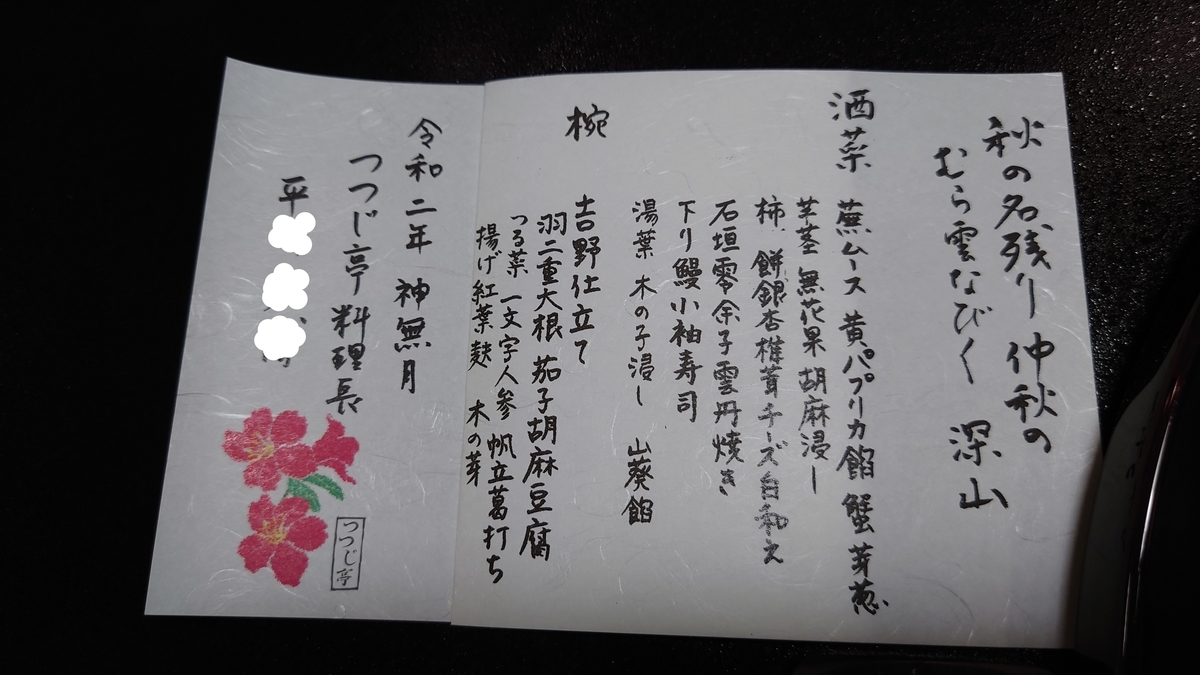 秋の名残り 仲秋の
むら雲なびく 深山
酒菜
蕪ムース 黄パプリカ餡 蟹 芽葱
芋茎 無花果 胡麻浸し
柿、餅銀杏 椎茸 チーズ白和え
石垣零余子雲丹焼き
下り鰻小袖寿司
湯葉 木の子浸し 山葵餡
椀
吉野仕立て
羽二重大根 茄子胡麻豆腐
つる菜 一文字人参 帆立葛打ち
揚げ紅葉麩 木の芽
令和二年 神無月
つつじ亭 料理長
平
つつじ亭